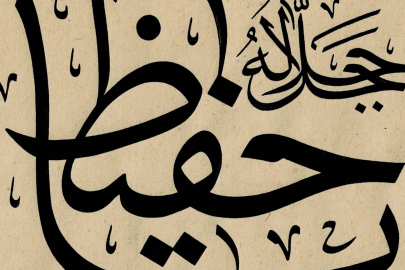 جل جلاله
حفيظ